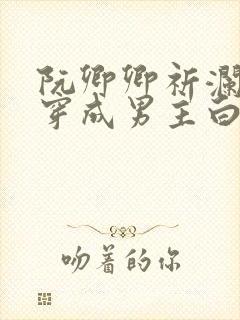 阮卿卿祈澜
穿成男主白
吻着的你